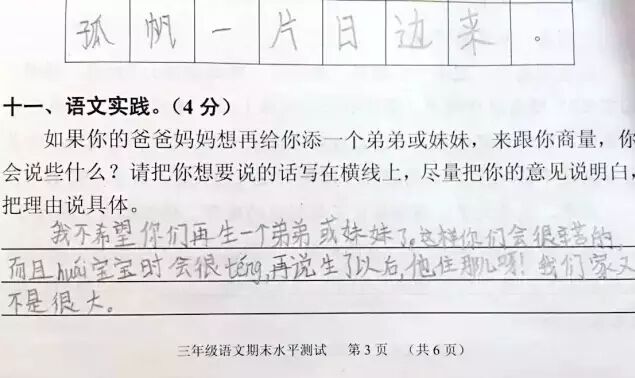 孤帆一片日边来。
十一、语文实践。（4分）
如果你的爸爸妈妈想再给你添一个弟弟或妹妹，来跟你商量，你
会说些什么？请把你想要说的话写在横线上，尽量把你的意见说明白，
把理由说具体。
我不希望你们再生一个弟弟或妹妹了。这样你们会很辛苦的，
而且huái宝宝时会很téng，再说生了以后，他住那儿呀！我们家又
不是很大。
三年级语文期末水平测试 第3页 （共6页）